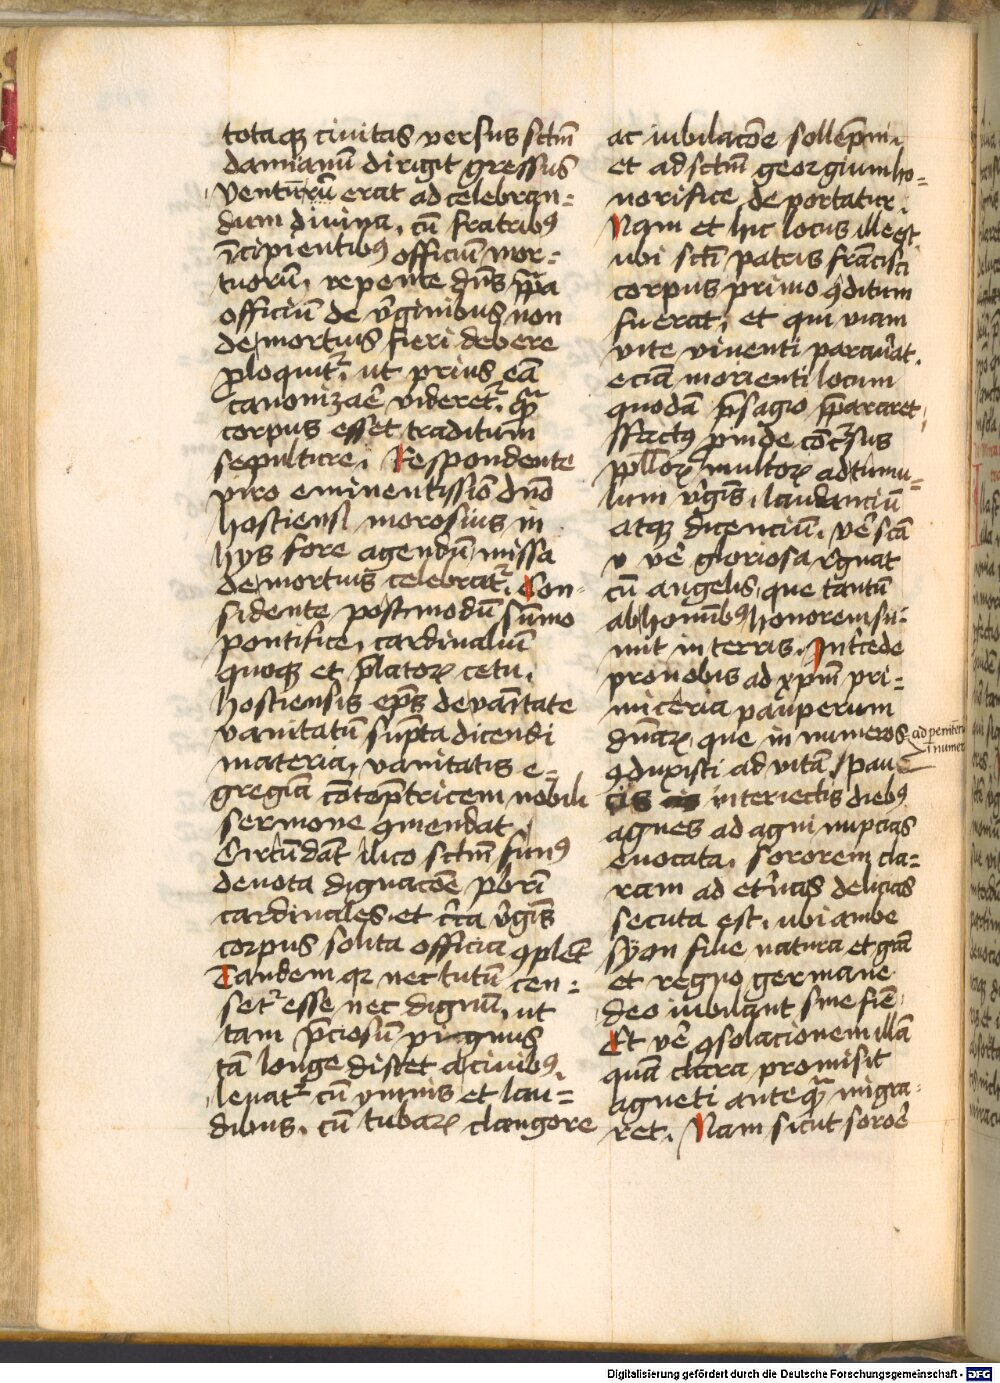 totaqꝫ ciuitas versus sctm̄
damianū dirigit gressus
Ventuꝝ erat ad celebran=
dum diuina, cū fratribꝰ
īcipientibꝰ officiū mor=
tuorū, repente dn̄s p̄p̄a
officiū de v̓ginibus non
de mortuis fieri debere
ꝓloquit᷑, ut prius eā
canonizar̄e videret᷑, qᷓꝫ
corpus esset traditum
sepulture. Respondente
viro eminentissio dn̄o
hostiensi morosius in
hys fore agendū, missa
de mortuis celebrat᷑. Con-
sidente postmodū sūmo
pontifice, cardinaliū
quoqꝫ et p̄latoꝝ cetu,
hostiensis ep̄s de vaītate
vanitatū sūpta dicendi
materia, vanitatis e=
gregiā cōtēp̄tricem nobili
sermone ꝯmendat.
Circūdāt ilico sctm̄ funꝰ
deuota dignacōe p̄br̄i
cardinales, et cꝰca v̓gīs
corpus solita officia ꝯplēt
Tandem qꝛ nec tutū cen=
set᷑ esse nec dignū, ut
tam p̄ciosū pignus
tā longe distet a ciuibꝰ,
leuat᷑ cū ymnis et lau=
dibus, cū tubaꝝ clangore
ac iubilacōe sollēpni,
et ad sctm̄ georgium ho=
norifice deportatur.
Nam et hic locus ille est,
ubi sct̄i patris frācisci
corpus primo ꝯditum
fuerat, et qui viam
vite viuenti parau̓at,
eciā morienti locum
quodā p̄sagio p̄pararet,
ffactꝰ ꝓinde cōc̓sus
pp̄l̄oꝝ multoꝝ ad tumu=
lum v̓gīs, laudanciū
atqꝫ dicenciū, ver̄ sc̄a
v ver̄ gloriosa r̓gnat
cū angelis, que tantū
ab homībꝰ honorem sii-
mit in terris. Int̓cede
pro nobis ad xp̄m pri=
miceria pauperum
dn̄aꝝ, que in numeros
ꝯduxisti ad vitā. Pau
cis interiectis diebꝰ
agnes ad agni nupcias
euocata, sororem cla=
ram ad et̓nas delicias
secuta est, ubi ambe
syon filie natura et gr̄a
et regno germane
deo iubilant sine fine
Et ver̄ ꝯsolacionem illā
quā clara promisit
agneti anteqᷓꝫ migra-
ret. Nam sicut soror̄e
ad peniten
Digitalisierung gefördert durch die Deutsche Forschungsgemeinschaft - DFG